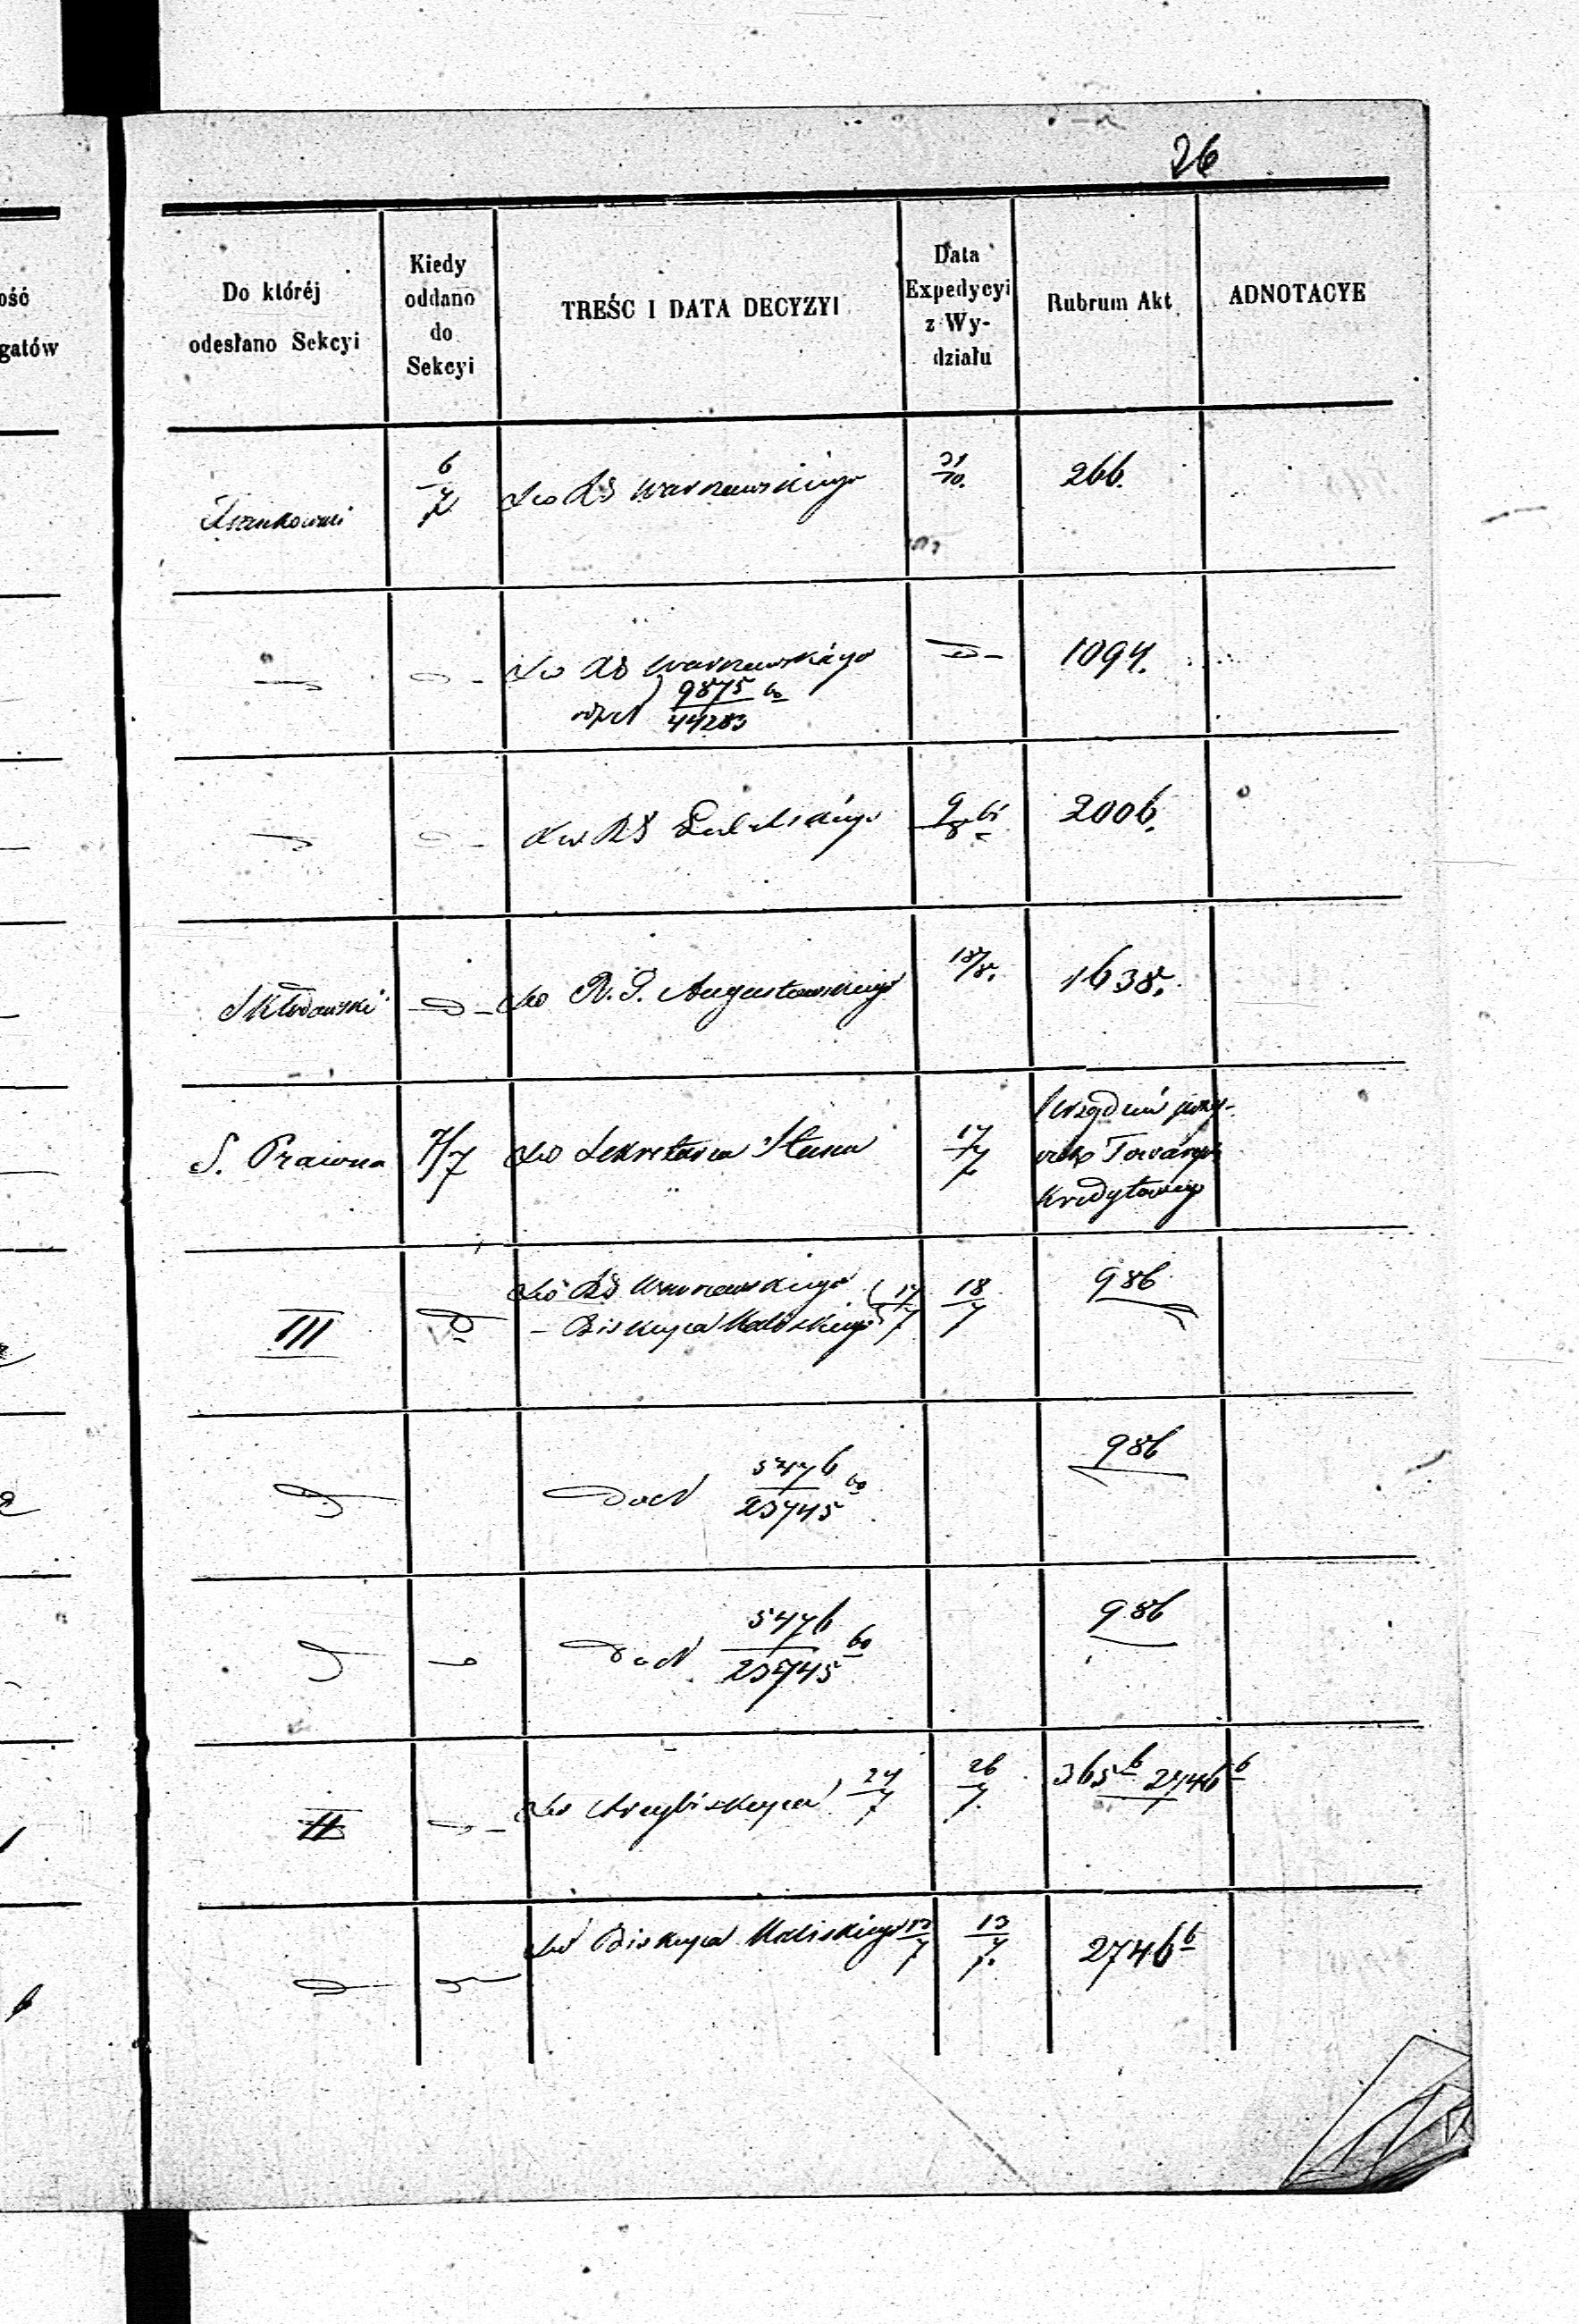 26
ość
gatów
Do któréj
odesłano Sekcyi
Kiedy
oddano
do
Sekcyi
TREŚC I DATA DECYZYI
Data
Expedycyi
z Wy-
działu
Rubrum Akt
ADNOTACYE
6/7 Do RG Warszawskiego 266.
Do RG Warszawskiego 1094.
9875
44283
Do RG Lubelskiego 9/8 2006.
Skłodowski Do R. G. Augustowskiego 18/8. 1638.
S. Prawna 7/7 Do Sekretarza Stanu 17/7
Towarzys
Kredytowego
III Do RG Warszawskiego 17/7 18/7 986
- Biskupa Kaliskiego
5476
23745
986
5476
23745
986
II Do Arcybiskupa 24/7 26/7 365 b 2746 b
Do Biskupa Kaliskiego 13/7 13/7. 2746 b